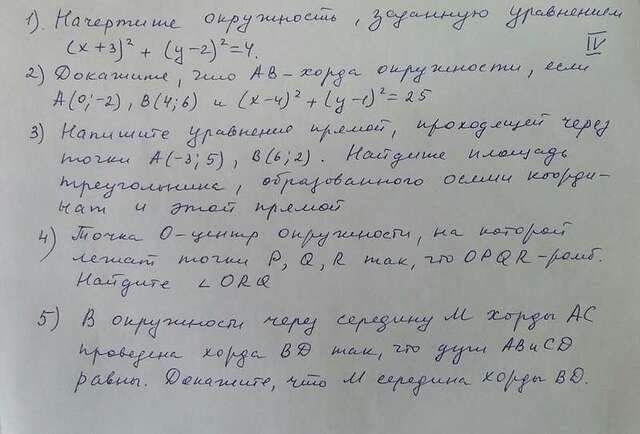 1). Начертите окружность, заданную уравнением
(x+3)² + (y-2)² = 4.
IV
2) Докажите, что AB – хорда окружности, если
A(0;-2), B(4;6) и (x-4)² + (y-1)² = 25
3) Напишите уравнение прямой, проходящей через
точки A(-3;5), B(6;2). Найдите площадь
треугольника, образованного осями коорди-
нат и этой прямой
4) Точка O-центр окружности, на которой
лежат точки P, Q, R так, что OPQR – ромб.
Найдите ∠ORQ
5) В окружности через середину M хорды AC
проведена хорда BD так, что дуги AB и CD
равны. Докажите, что M середина хорды BD.